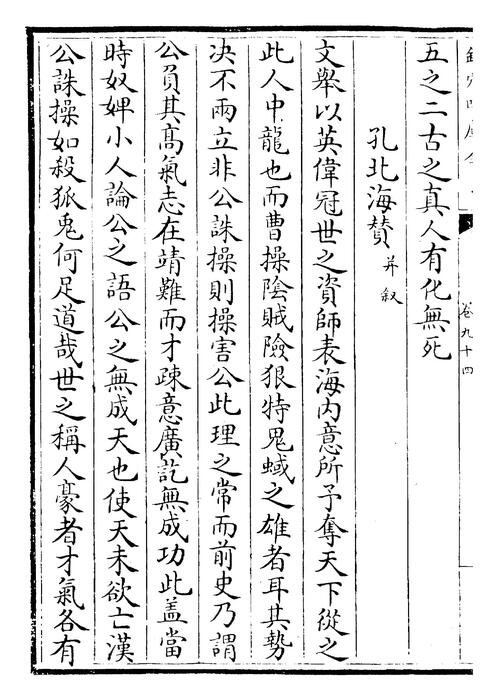 五之二古之真人有化無死
孔北海贊并叙
文舉以英偉冠世之資師表海内意所予奪天下從之
此人中龍也而曹操陰賊險狠特鬼蜮之雄者耳其勢
决不兩立非公誅操則操害公此理之常而前史乃謂
公負其高氣志在靖難而才疎意廣訖無成功此盖當
時奴婢小人論公之語公之無成天也使天未欲亡漢
公誅操如殺狐兎何足道哉世之稱人豪者才氣各有
卷九十四